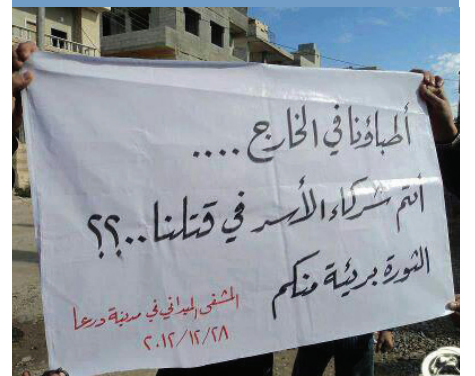 أطباؤنا في الخارج ....
أنتم شركاء الأسد في قتلنا..؟؟
الثورة بريئة منكم
المشفى الميداني في مدينة درعا
٢٠١٢/١٢/٢٨